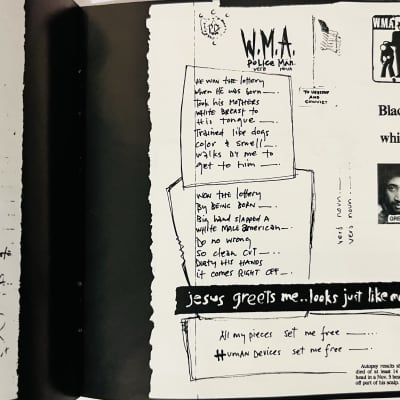 W.M.A.
Police Man
VERB NOUN
HE WON THE lottery
when HE WAS born
Took his MOTHERS
WHITE BREAST to
HIS tongue
TRAINED like dogs
color & smell
walks BY me to
get to him
TO
AND
CONVICT
WON THE lottery
By BEING BORN
Big hand slapped A
WHITE MALE AMERICAN
Do no wrong
so clean cut
DIRTY HIS HANDS
it comes RIGHT OFF
verb noun
verb noun
jesus greets me..looks just like me
All my pieces set me free
HUMAN DEVICES set me free
W.M.A
Blac
whi
GRE
Autopsy results
died of at least 14
head in a Nov. 5 bea
off part of his scalp.